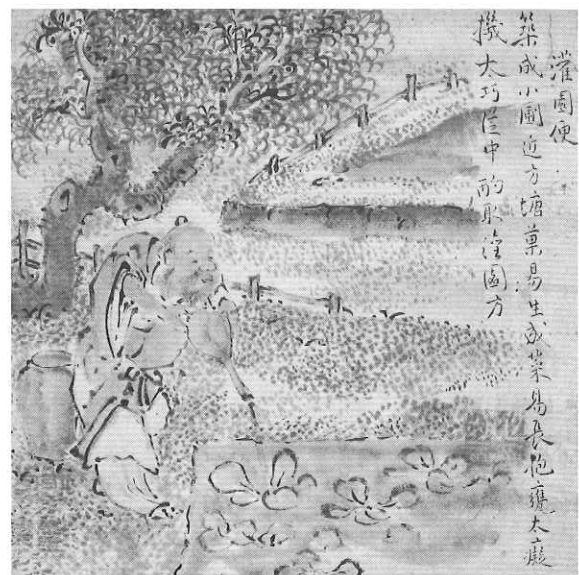 灌園便
築成小圃近方塘菓易生成菜易長抱甕太癡
機太巧從中酌取灌園方